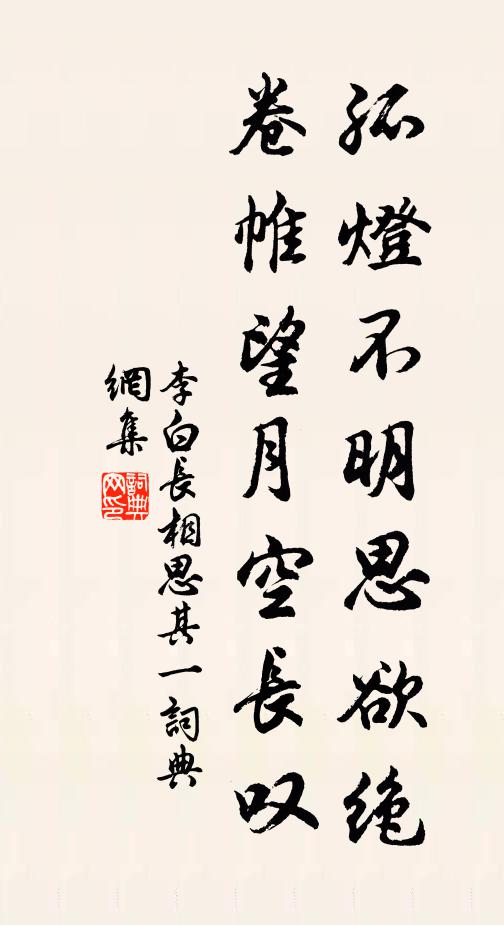 孤燈不明思欲绝
卷帷望月空長叹
李白長相思其一詞典
網集
詞典
网印